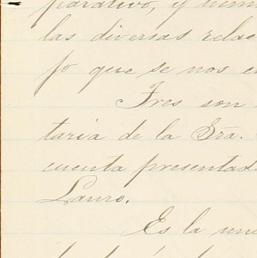 parativo, y
las diversas
fo que se nos
Tres son
taria de la Sra.
cuenta presentad
Lauro.
Es la